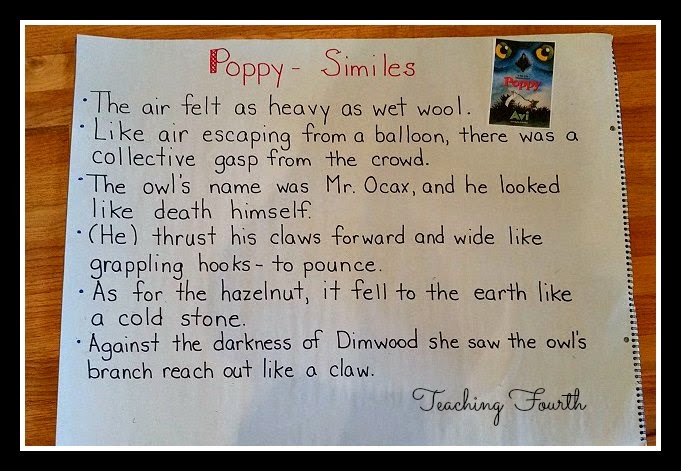 Poppy - Similes
Poppy
Avi
• The air felt as heavy as wet wool.
• Like air escaping from a balloon, there was a
collective gasp from the crowd.
• The owl's name was Mr. Ocax, and he looked
like death himself.
• (He) thrust his claws forward and wide like
grappling hooks - to pounce.
• As for the hazelnut, it fell to the earth like
a cold stone.
• Against the darkness of Dimwood she saw the owl's
branch reach out like a claw.
Teaching Fourth